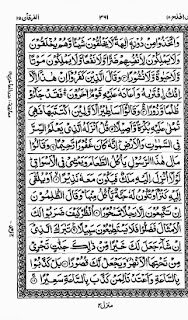 الفرقان ٢٥
٣٩١
وَاتَّخَذُوْا مِنْ دُوْنِهٖۤ اٰلِهَةً لَّا يَخْلُقُوْنَ شَيْـًٔا وَّهُمْ يُخْلَقُوْنَ
وَلَا يَمْلِكُوْنَ لِاَنْفُسِهِمْ ضَرًّا وَّلَا نَفْعًا وَّلَا يَمْلِكُوْنَ مَوْتًا
وَّلَا حَيٰوةً وَّلَا نُشُوْرًا وَقَالَ الَّذِيْنَ كَفَرُوْۤا اِنْ هٰذَاۤ اِلَّاۤ
اِفْكُ افْتَرٰىهُ وَاَعَانَهٗ عَلَيْهِ قَوْمٌ اٰخَرُوْنَ فَقَدْ جَآءُوْ
ظُلْمًا وَّزُوْرًا وَقَالُوْۤا اَسَاطِيْرُ الْاَوَّلِيْنَ اكْتَتَبَهَا فَهِيَ
تُمْلٰى عَلَيْهِ بُكْرَةً وَّاَصِيْلًا قُلْ اَنْزَلَهُ الَّذِيْ يَعْلَمُ السِّرَّ
فِي السَّمٰوٰتِ وَالْاَرْضِ اِنَّهٗ كَانَ غَفُوْرًا رَّحِيْمًا وَقَالُوْا
مَالِ هٰذَا الرَّسُوْلِ يَاْكُلُ الطَّعَامَ وَيَمْشِيْ فِي الْاَسْوَاقِ
لَوْلَاۤ اُنْزِلَ اِلَيْهِ مَلَكٌ فَيَكُوْنَ مَعَهٗ نَذِيْرًا اَوْ يُلْقٰۤى
اِلَيْهِ كَنْزٌ اَوْ تَكُوْنُ لَهٗ جَنَّةٌ يَّاْكُلُ مِنْهَا وَقَالَ الظّٰلِمُوْنَ
اِنْ تَتَّبِعُوْنَ اِلَّا رَجُلًا مَّسْحُوْرًا اُنْظُرْ كَيْفَ ضَرَبُوْا لَكَ
الْاَمْثَالَ فَضَلُّوْا فَلَا يَسْتَطِيْعُوْنَ سَبِيْلًا تَبٰرَكَ الَّذِيْۤ
اِنْ شَآءَ جَعَلَ لَكَ خَيْرًا مِّنْ ذٰلِكَ جَنّٰتٍ تَجْرِيْ
مِنْ تَحْتِهَا الْاَنْهٰرُ وَيَجْعَلْ لَّكَ قُصُوْرًا بَلْ كَذَّبُوْا
بِالسَّاعَةِ وَاَعْتَدْنَا لِمَنْ كَذَّبَ بِالسَّاعَةِ سَعِيْرًا
منزل ٤